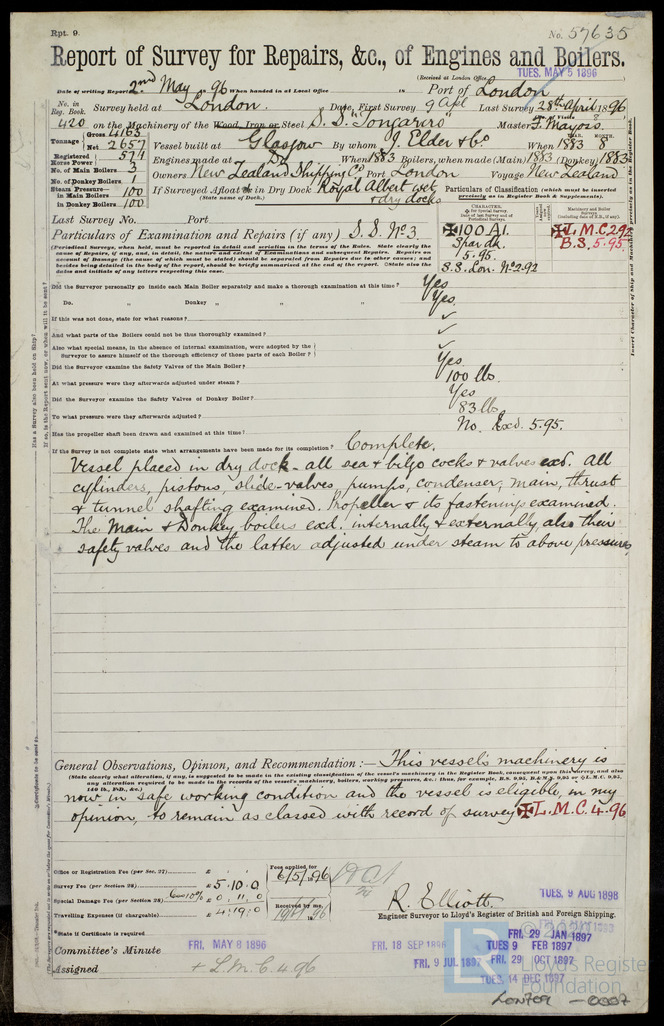 Rpt. 9.
No. 57635
Report of Survey for Repairs, &c., of Engines and Boilers.
(Received at London Office TUES. MAY 5 1896
Date of writing Report 2nd May 96 When handed in at Local Office Port of London
No. in Reg. Book. Survey held at London. Date, First Survey 9 Apl Last Survey 28th April 1896
420 on the Machinery of the Wood, Iron or Steel S.S. "Tongariro" Master F. Mayois
Tonnage Gross 4163
Net 2657 Vessel built at Glasgow By whom J. Elder & Co When 1883 8
Registered Horse Power 571 Engines made at Do When 1883 Boilers, when made (Main) 1883 (Donkey) 1883
No. of Main Boilers 3 Owners New Zealand Shipping Co Port London Voyage New Zealand
No. of Donkey Boilers 1
Steam Pressure in Main Boilers 100 If Surveyed Afloat or in Dry Dock Royal Albert wet & dry docks
in Donkey Boilers 100 (State name of Dock.)
Particulars of Classification (which must be inserted precisely as in Register Book & Supplements).
Last Survey No. Port
Particulars of Examination and Repairs (if any) S.S. No 3.
✠100 A1. ✠L.M.C. 2.92
Spar dk. B.S. 5.95.
5.95.
S.S. Lon. No 2-92
(Periodical Surveys, when held, must be reported in detail and seriatim in the terms of the Rules. State clearly the
cause of Repairs, if any, and, in detail, the nature and extent of Examinations and subsequent Repairs. Repairs on
account of Damage (the cause of which must be stated) should be separated from Repairs due to other causes; and
besides being detailed in the body of the report, should be briefly summarised at the end of the report. State also the
dates and initials of any letters respecting this case.
Did the Surveyor personally go inside each Main Boiler separately and make a thorough examination at this time? Yes
Do. " Donkey " " " Yes.
If this was not done, state for what reasons? ✓
And what parts of the Boilers could not be thoroughly examined? ✓
Also what special means, in the absence of internal examination, were adopted by the
Surveyor to assure himself of the thorough efficiency of those parts of each Boiler? ✓
Did the Surveyor examine the Safety Valves of the Main Boiler? Yes
At what pressure were they afterwards adjusted under steam? 100 lbs.
Did the Surveyor examine the Safety Valves of Donkey Boiler? Yes
To what pressure were they afterwards adjusted? 83 lbs.
Has the propeller shaft been drawn and examined at this time? No. Exd. 5.95.
If the Survey is not complete state what arrangements have been made for its completion? Complete.
Vessel placed in dry dock - all sea & bilge cocks & valves exd. All
cylinders, pistons, slide-valves, pumps, condenser, main, thrust
& tunnel shafting examined. Propeller & its fastenings examined.
The Main & Donkey boilers exd. internally & externally, also their
safety valves and the latter adjusted under steam to above pressures
General Observations, Opinion, and Recommendation:— This vessel's machinery is
(State clearly what alteration, if any, is suggested to be made in the existing classification of the vessel's machinery in the Register Book, consequent upon this survey, and also
any alteration required to be made in the records of the vessel's machinery, boilers, working pressures, &c.: thus, for example, B.S. 9.95, B.&M.S. 9.95 or L.M.C. 9.95,
140 lb., F.D., &c.)
now in safe working condition and the vessel is eligible, in my
opinion, to remain as classed with record of survey ✠L.M.C. 4.96
Office or Registration Fee (per Sec. 27) £
Survey Fee (per Section 28) £ 5.10.0
Special Damage Fee (per Section 28) Less 10% £ 0.11.0
Travelling Expenses (if chargeable) £ 4.19.0
Fees applied for 6/5/96
Received by me
R. Elliott.
Engineer Surveyor to Lloyd's Register of British and Foreign Shipping.
TUES. 9 AUG 1898
State if Certificate is required
Committee's Minute FRI. MAY 8 1896
FRI. 18 SEP 1896
FRI. 29 JAN 1897
TUES 9 FEB 1897
Assigned + L.M.C. 4.96
FRI. 9 JUL 1897
FRI. 29 OCT 1897
TUES. 14 DEC 1897
LR
Lloyd's Register
Foundation
LON709 - 0007